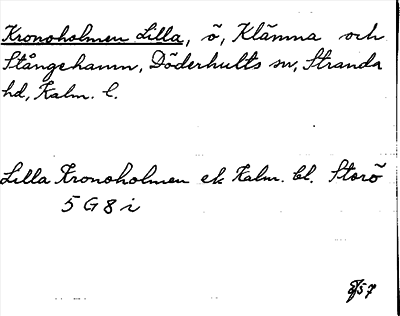 Kronoholmen Lilla, ö, Klämna och
Stångehamn, Döderhults sn, Stranda
hd, Kalm. l.
Lilla Kronoholmen ek Kalm. bl. Storö
5 G 8 i
57